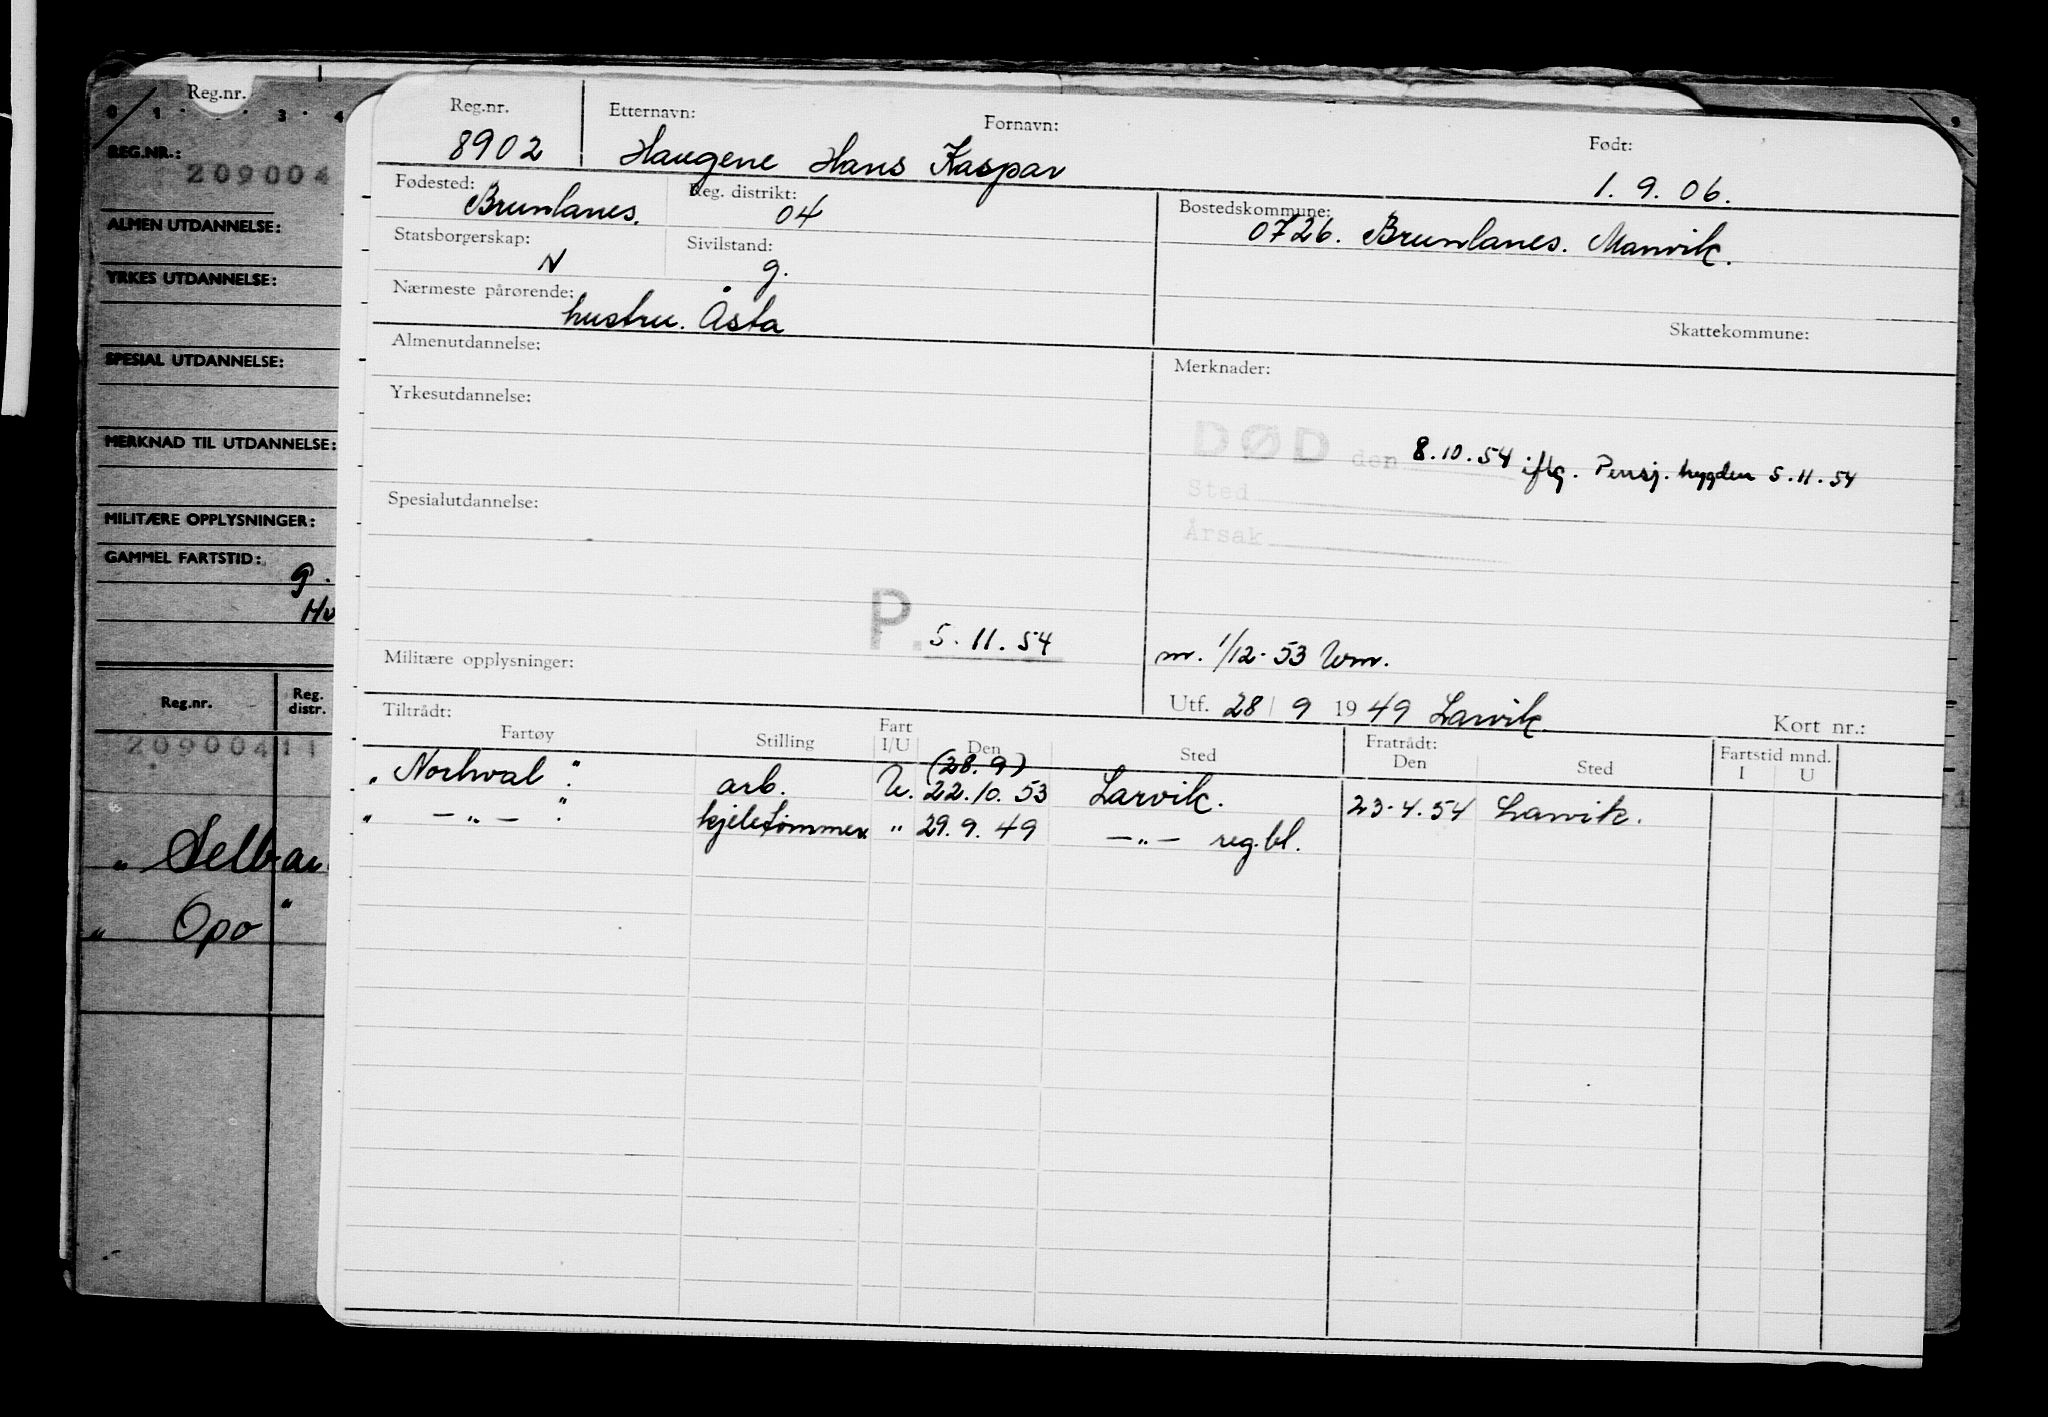 Reg.nr.
0 1 3 4
REG.NR.:
209004
ALMEN UTDANNELSE:
YRKES UTDANNELSE:
SPESIAL UTDANNELSE:
MERKNAD TIL UTDANNELSE:
MILITÆRE OPPLYSNINGER:
GAMMEL FARTSTID:
g.
Reg.nr. Reg. distr.
209004 11
" Selb
" Opo "
9
Reg.nr. Etternavn: Fornavn: Født:
8902 Haugene Hans Kaspar 1. 9. 06.
Fødested: Reg. distrikt: Bostedskommune:
Brunlanes. 04 0726. Brunlanes. Manvik.
Statsborgerskap: Sivilstand:
N g.
Nærmeste pårørende:
hustru. Åsta
Skattekommune:
Almenutdannelse: Merknader:
Yrkesutdannelse:
DØD den 8.10.54 iflg. Pensj. trygden 5.11.54
Sted
Spesialutdannelse:
Årsak
P. 5.11.54
m. 1/12-53 Wm.
Militære opplysninger:
Utf. 28/9 1949 Larvik. Kort nr.:
Tiltrådt: Fratrådt: Fartstid mnd.
Fartøy Stilling Fart I/U Den Sted Den Sted I U
(28.9)
" Norhval " arb. U. 22.10.53 Larvik. 23.4.54 Larvik.
" —"— " kjeletømmer " 29.9.49 —"— reg.bl.